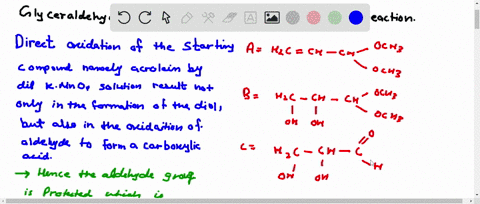 Glyceraldehy
eaction.
Direct oxidation of the Starting
compound namely acrolein by
dil K.MnO4 solution result not
only in the formation of the diol,
but also in the oxidaition of
aldehyde to form a carboxylic
acid.
→ Hence the aldehyde group
is Protected which is
A= H2C=CH-CH
OCH3
OCH3
B= H2C-CH-CH
OCH3
OCH3
OH OH
C= H2C-CH-C
O
H
OH OH